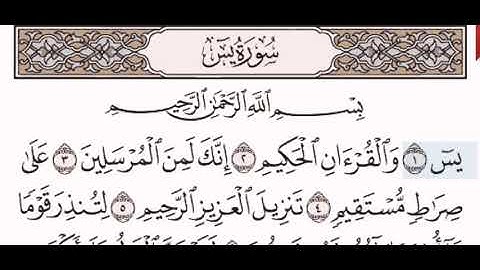 سُورَةُ يسٓ
بِسْمِ ٱللَّهِ ٱلرَّحْمَٰنِ ٱلرَّحِيمِ
يسٓ ١ وَٱلْقُرْءَانِ ٱلْحَكِيمِ ٢ إِنَّكَ لَمِنَ ٱلْمُرْسَلِينَ ٣ عَلَىٰ
صِرَٰطٍ مُّسْتَقِيمٍ ٤ تَنزِيلَ ٱلْعَزِيزِ ٱلرَّحِيمِ ٥ لِتُنذِرَ قَوْمًا